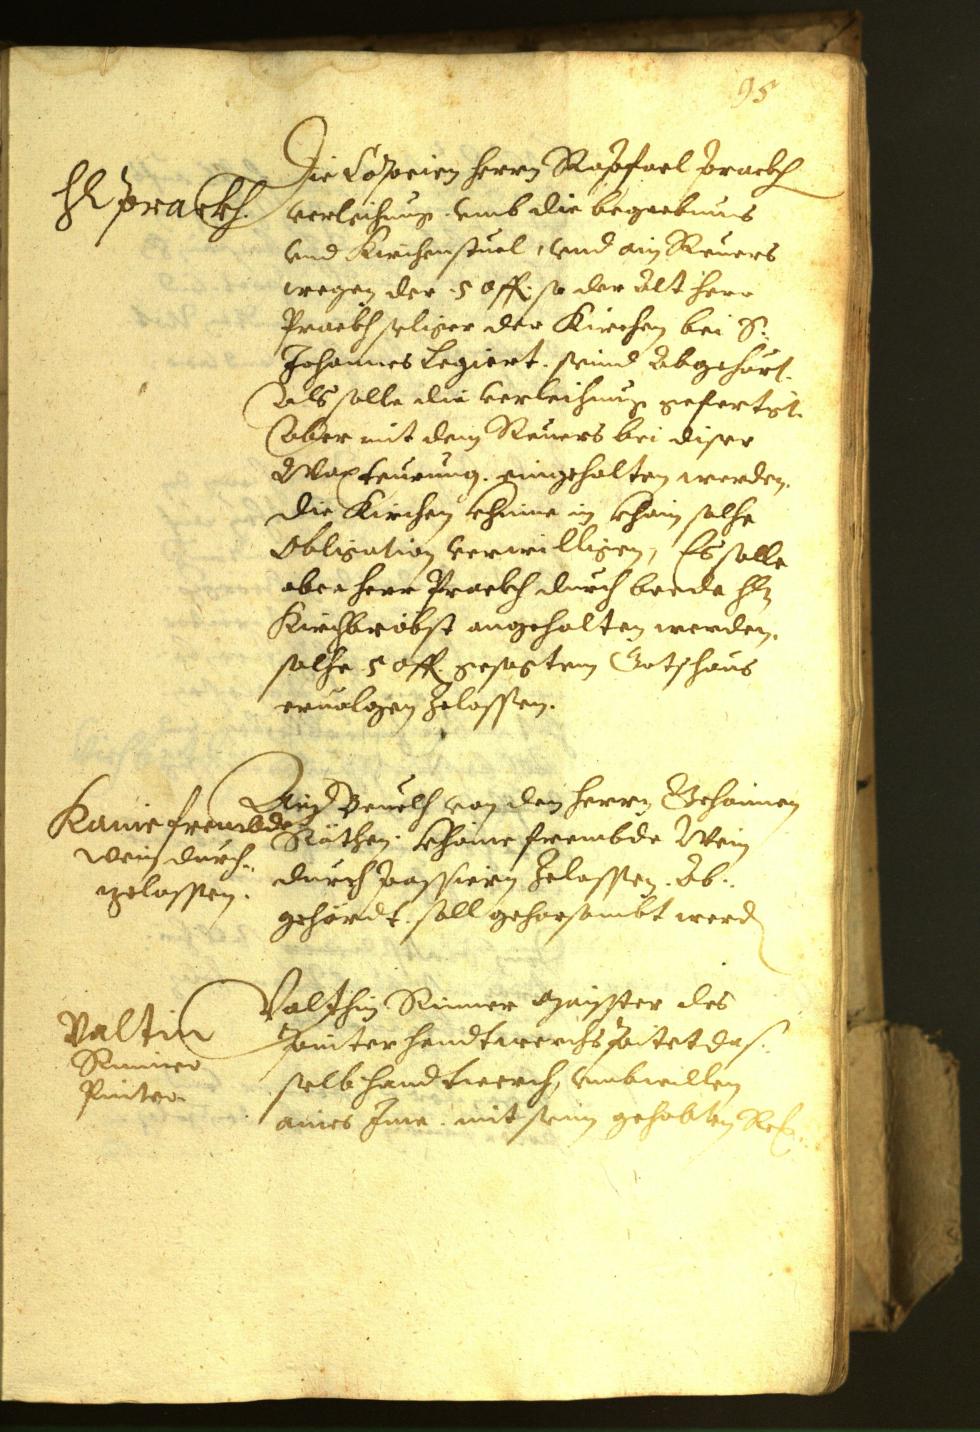 95
H: Prackh.
Die Copeien herrn Raphael Prackh
verleihung vmb die begrebnus
vnd Kirchenstuel, vnd ain Reuers
wegen der 50 fl. so der Alt herr
Prackh seliger der Kirchen bei S:
Johannes Legiert. seind Abgehört.
Als solle die verleihung gefertigt.
Aber mit dem Reuers bei diser
eingehalten werden.
Die Kirchen khinne in khain solhe
Obligation verwilligen, Es solle
aber herr Prackh durch beede hn
Kirchbröbst angehalten werden,
solhe 50 fl. gesagtem Gotshaus
eruolgen zelassen.
Kaine frembde
wein durch-
zelassen.
Ain Beuelh von den herrn Gehaimen
Räthen. khaine frembde Wein
durch passiern zelassen. Ab-
gehördt. soll gehorsambt werd
Valtin
Rimer
Pinter
Valthin Rimer Maister des
Pinter handtwerchs Pitet das-
selb handtwerch, vmbwillen
aines Ime. mit seim gehabten